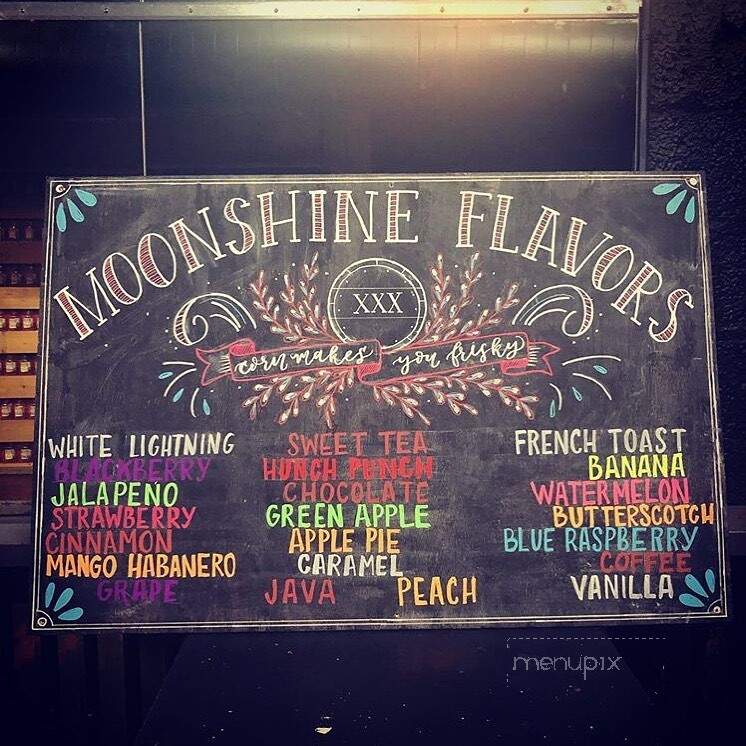 MOONSHINE FLAVORS
XXX
corn makes you frisky
WHITE LIGHTNING
BLACKBERRY
JALAPENO
STRAWBERRY
CINNAMON
MANGO HABANERO
GRAPE
SWEET TEA
HUNCH PUNCH
CHOCOLATE
GREEN APPLE
APPLE PIE
CARAMEL
JAVA PEACH
FRENCH TOAST
BANANA
WATERMELON
BUTTERSCOTCH
BLUE RASPBERRY
COFFEE
VANILLA
menupix